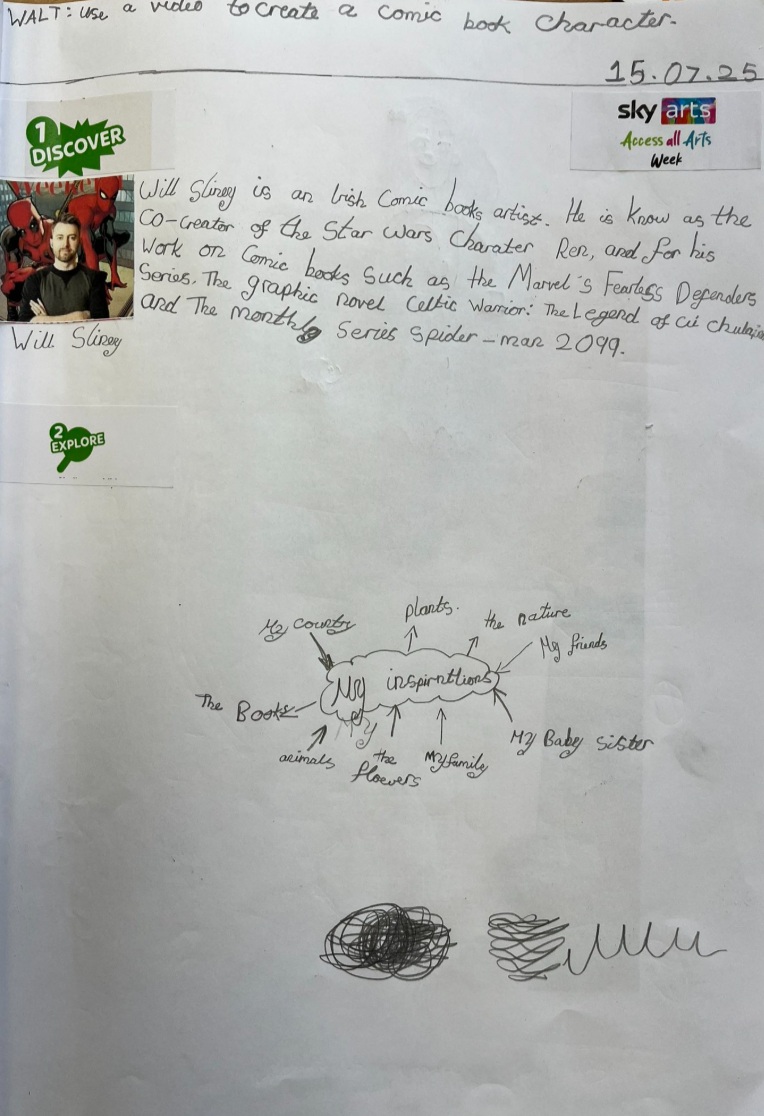 WALT: Use a video to create a comic book Character.
15.07.25
1
DISCOVER
sky arts
Access all Arts
Week
Will Sliney is an Irish Comic books artist. He is know as the
Co-creator of the Star Wars Charater Ren, and for his
Work on Comic books Such as the Marvel's Fearless Defenders
Series. The graphic novel Celtic Warrior: The Legend of Cú Chulain
and The monthly Series Spider-man 2099.
Will Sliney
2
EXPLORE
plants.
My country
the nature
My friends
My inspirnttions
The Books
My
My Baby sister
animals
the
floevers
My family